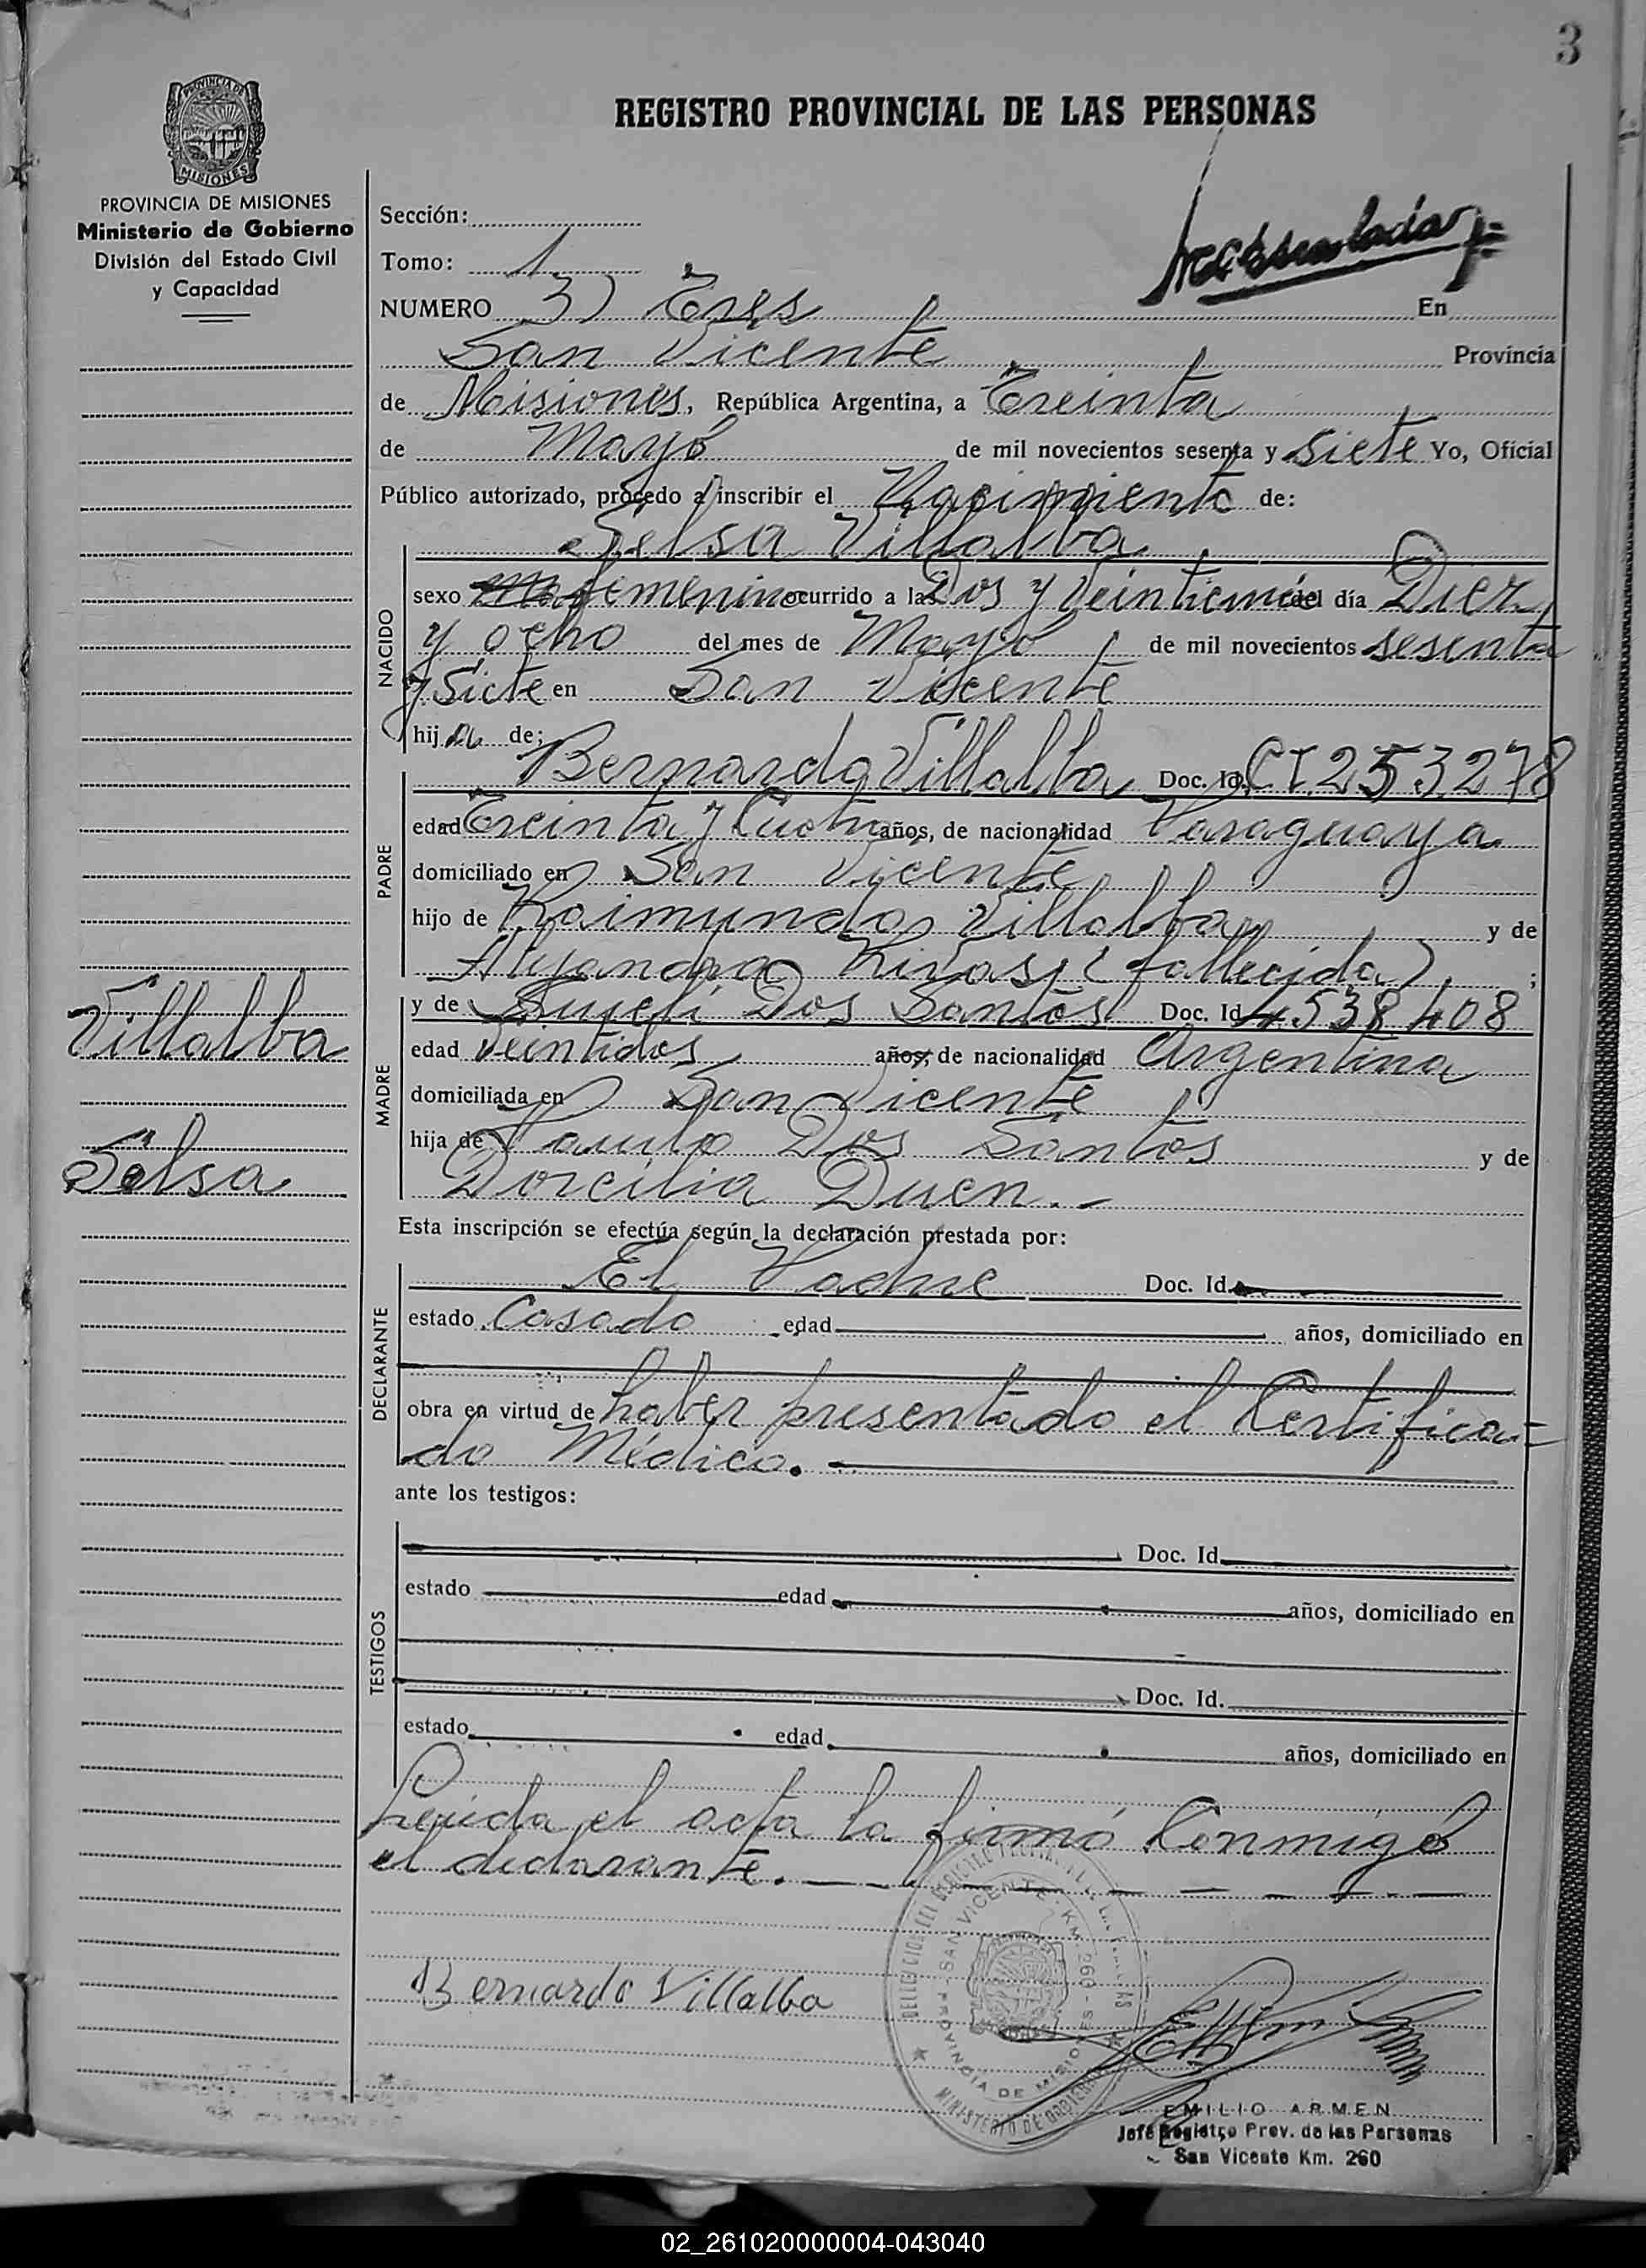 3
REGISTRO PROVINCIAL DE LAS PERSONAS
PROVINCIA DE
MISIONES
PROVINCIA DE MISIONES
Ministerio de Gobierno
División del Estado Civil
y Capacidad
Sección:
Tomo: 1
NUMERO 3) Tres En
San Vicente Provincia
de Misiones, República Argentina, a Treinta
de Mayo de mil novecientos sesenta y siete Yo, Oficial
Público autorizado, procedo a inscribir el Nacimiento de:
Selsa Villalba
NACIDO
sexo femenino ocurrido a las Dos y del día Diez
y ocho del mes de Mayo de mil novecientos sesenta
y Siete en San Vicente
hija de;
PADRE
Bernardo Villalba Doc. Id. CI 253278
edad Treinta y Cuatro años, de nacionalidad Paraguaya
domiciliado en San Vicente
hijo de Raimundo Villalba y de
Alejandra Rivas (fallecida) ;
MADRE
y de Dos Santos Doc. Id 4538408
edad Veintidos años, de nacionalidad Argentina
domiciliada en San Vicente
hija de Paulo Dos Santos y de
Dorcilia Duen.-
Villalba
Selsa
Esta inscripción se efectúa según la declaración prestada por:
DECLARANTE
El Padre Doc. Id.
estado Casado edad años, domiciliado en
obra en virtud de haber presentado el Certifica=
do Médico.
ante los testigos:
TESTIGOS
Doc. Id.
estado edad años, domiciliado en
Doc. Id.
estado edad años, domiciliado en
Leida el acta la firmó Conmigo
el declarante.
Bernardo Villalba
SAN VICENTE KM. 260 - PROVINCIA DE MISIONES
MINISTERIO DE GOBIERNO
EMILIO ARMEN
Jefe Registro Prov. de las Personas
San Vicente Km. 260
02_261020000004-043040